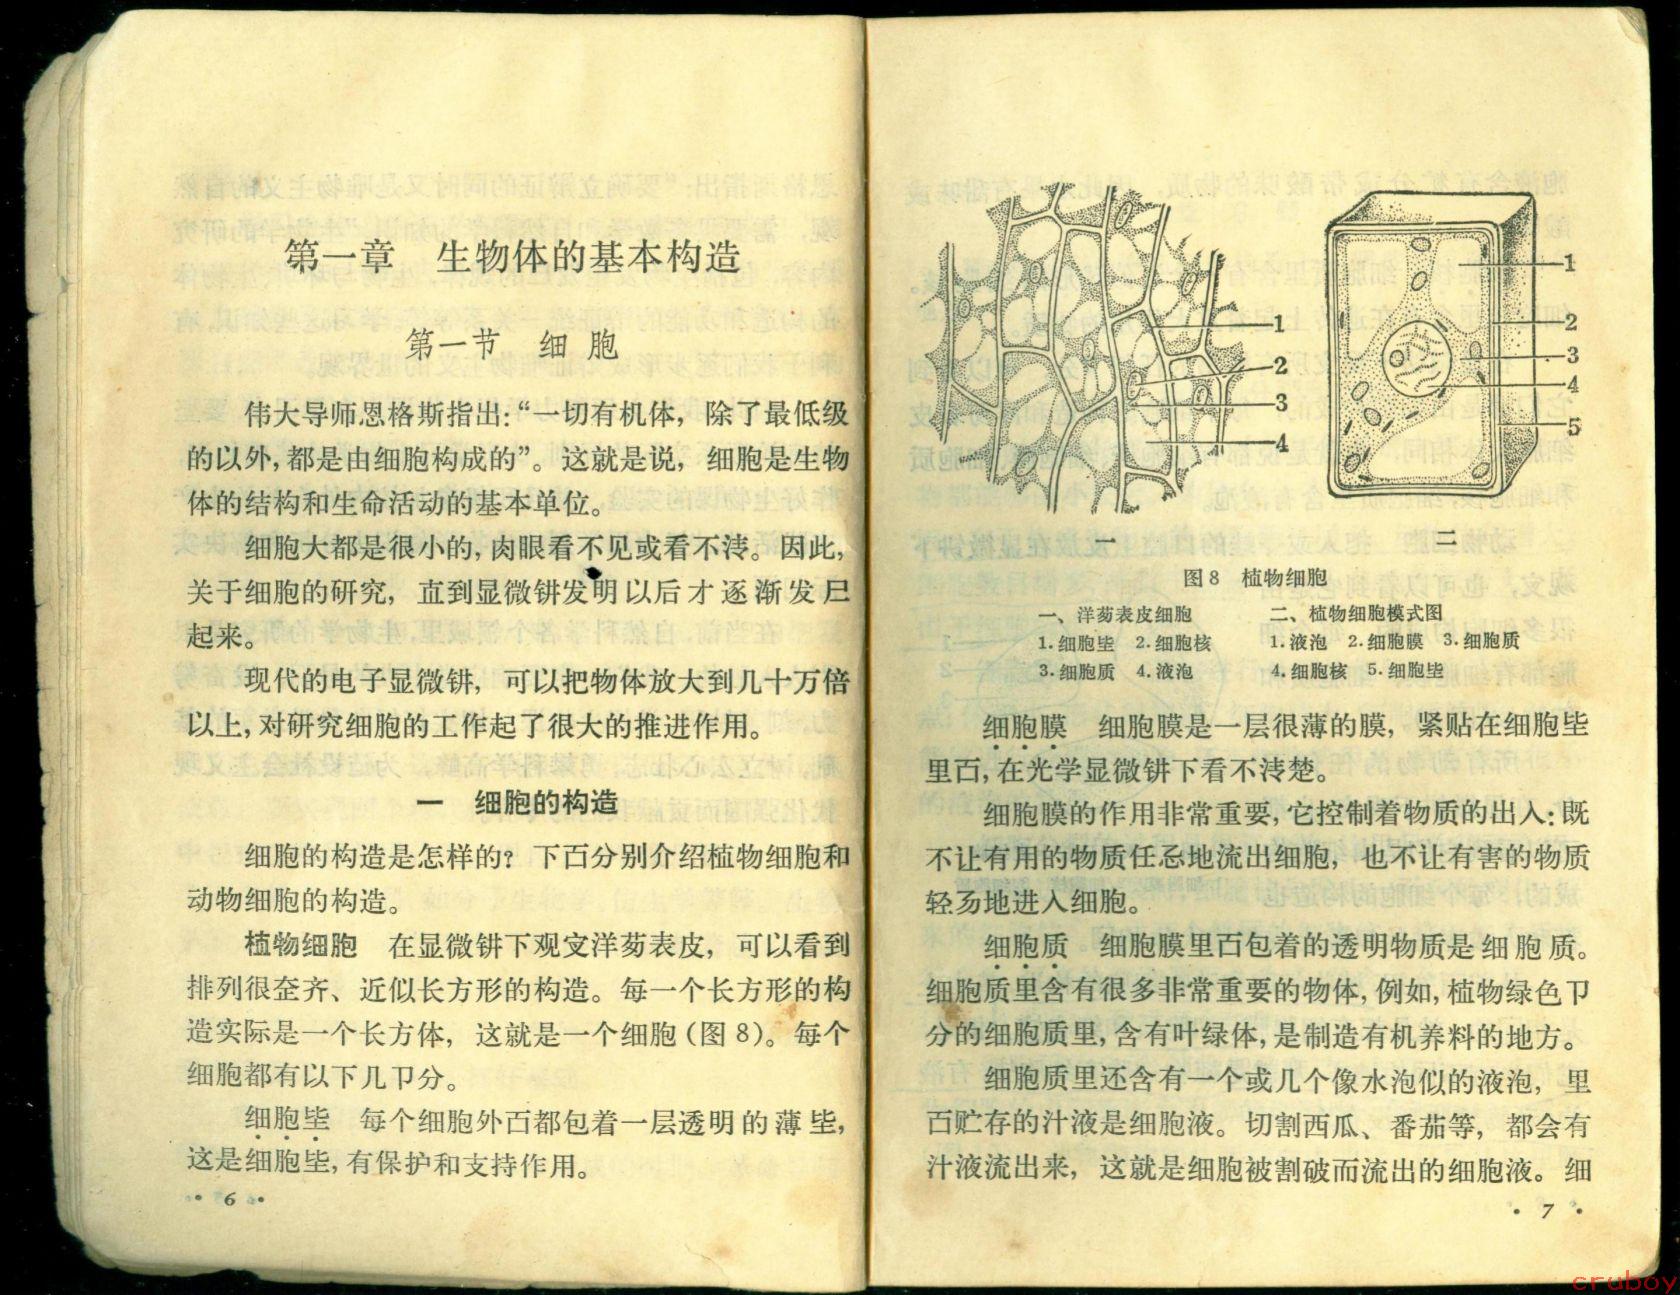 第一章 生物体的基本构造
第一节 细胞
伟大导师恩格斯指出:“一切有机体,除了最低级
的以外,都是由细胞构成的”。这就是说,细胞是生物
体的结构和生命活动的基本单位。
细胞大都是很小的,肉眼看不见或看不清。因此,
关于细胞的研究,直到显微镜发明以后才逐渐发展
起来。
现代的电子显微镜,可以把物体放大到几十万倍
以上,对研究细胞的工作起了很大的推进作用。
一 细胞的构造
细胞的构造是怎样的?下面分别介绍植物细胞和
动物细胞的构造。
植物细胞 在显微镜下观察洋葱表皮,可以看到
排列很整齐、近似长方形的构造。每一个长方形的构
造实际是一个长方体,这就是一个细胞(图8)。每个
细胞都有以下几卩分。
细胞坒 每个细胞外面都包着一层透明的薄坒,
这是细胞坒,有保护和支持作用。
• 6 •
1
2
3
4
一
1
2
3
4
5
二
图8 植物细胞
一、洋葱表皮细胞
1.细胞坒 2.细胞核
3.细胞质 4.液泡
二、植物细胞模式图
1.液泡 2.细胞膜 3.细胞质
4.细胞核 5.细胞坒
细胞膜 细胞膜是一层很薄的膜,紧贴在细胞坒
里面,在光学显微镜下看不清楚。
细胞膜的作用非常重要,它控制着物质的出入:既
不让有用的物质任意地流出细胞,也不让有害的物质
轻易地进入细胞。
细胞质 细胞膜里面包着的透明物质是细胞质。
细胞质里含有很多非常重要的物体,例如,植物绿色卩
分的细胞质里,含有叶绿体,是制造有机养料的地方。
细胞质里还含有一个或几个像水泡似的液泡,里
面贮存的汁液是细胞液。切割西瓜、番茄等,都会有
汁液流出来,这就是细胞被割破而流出的细胞液。细
• 7 •
cruboy